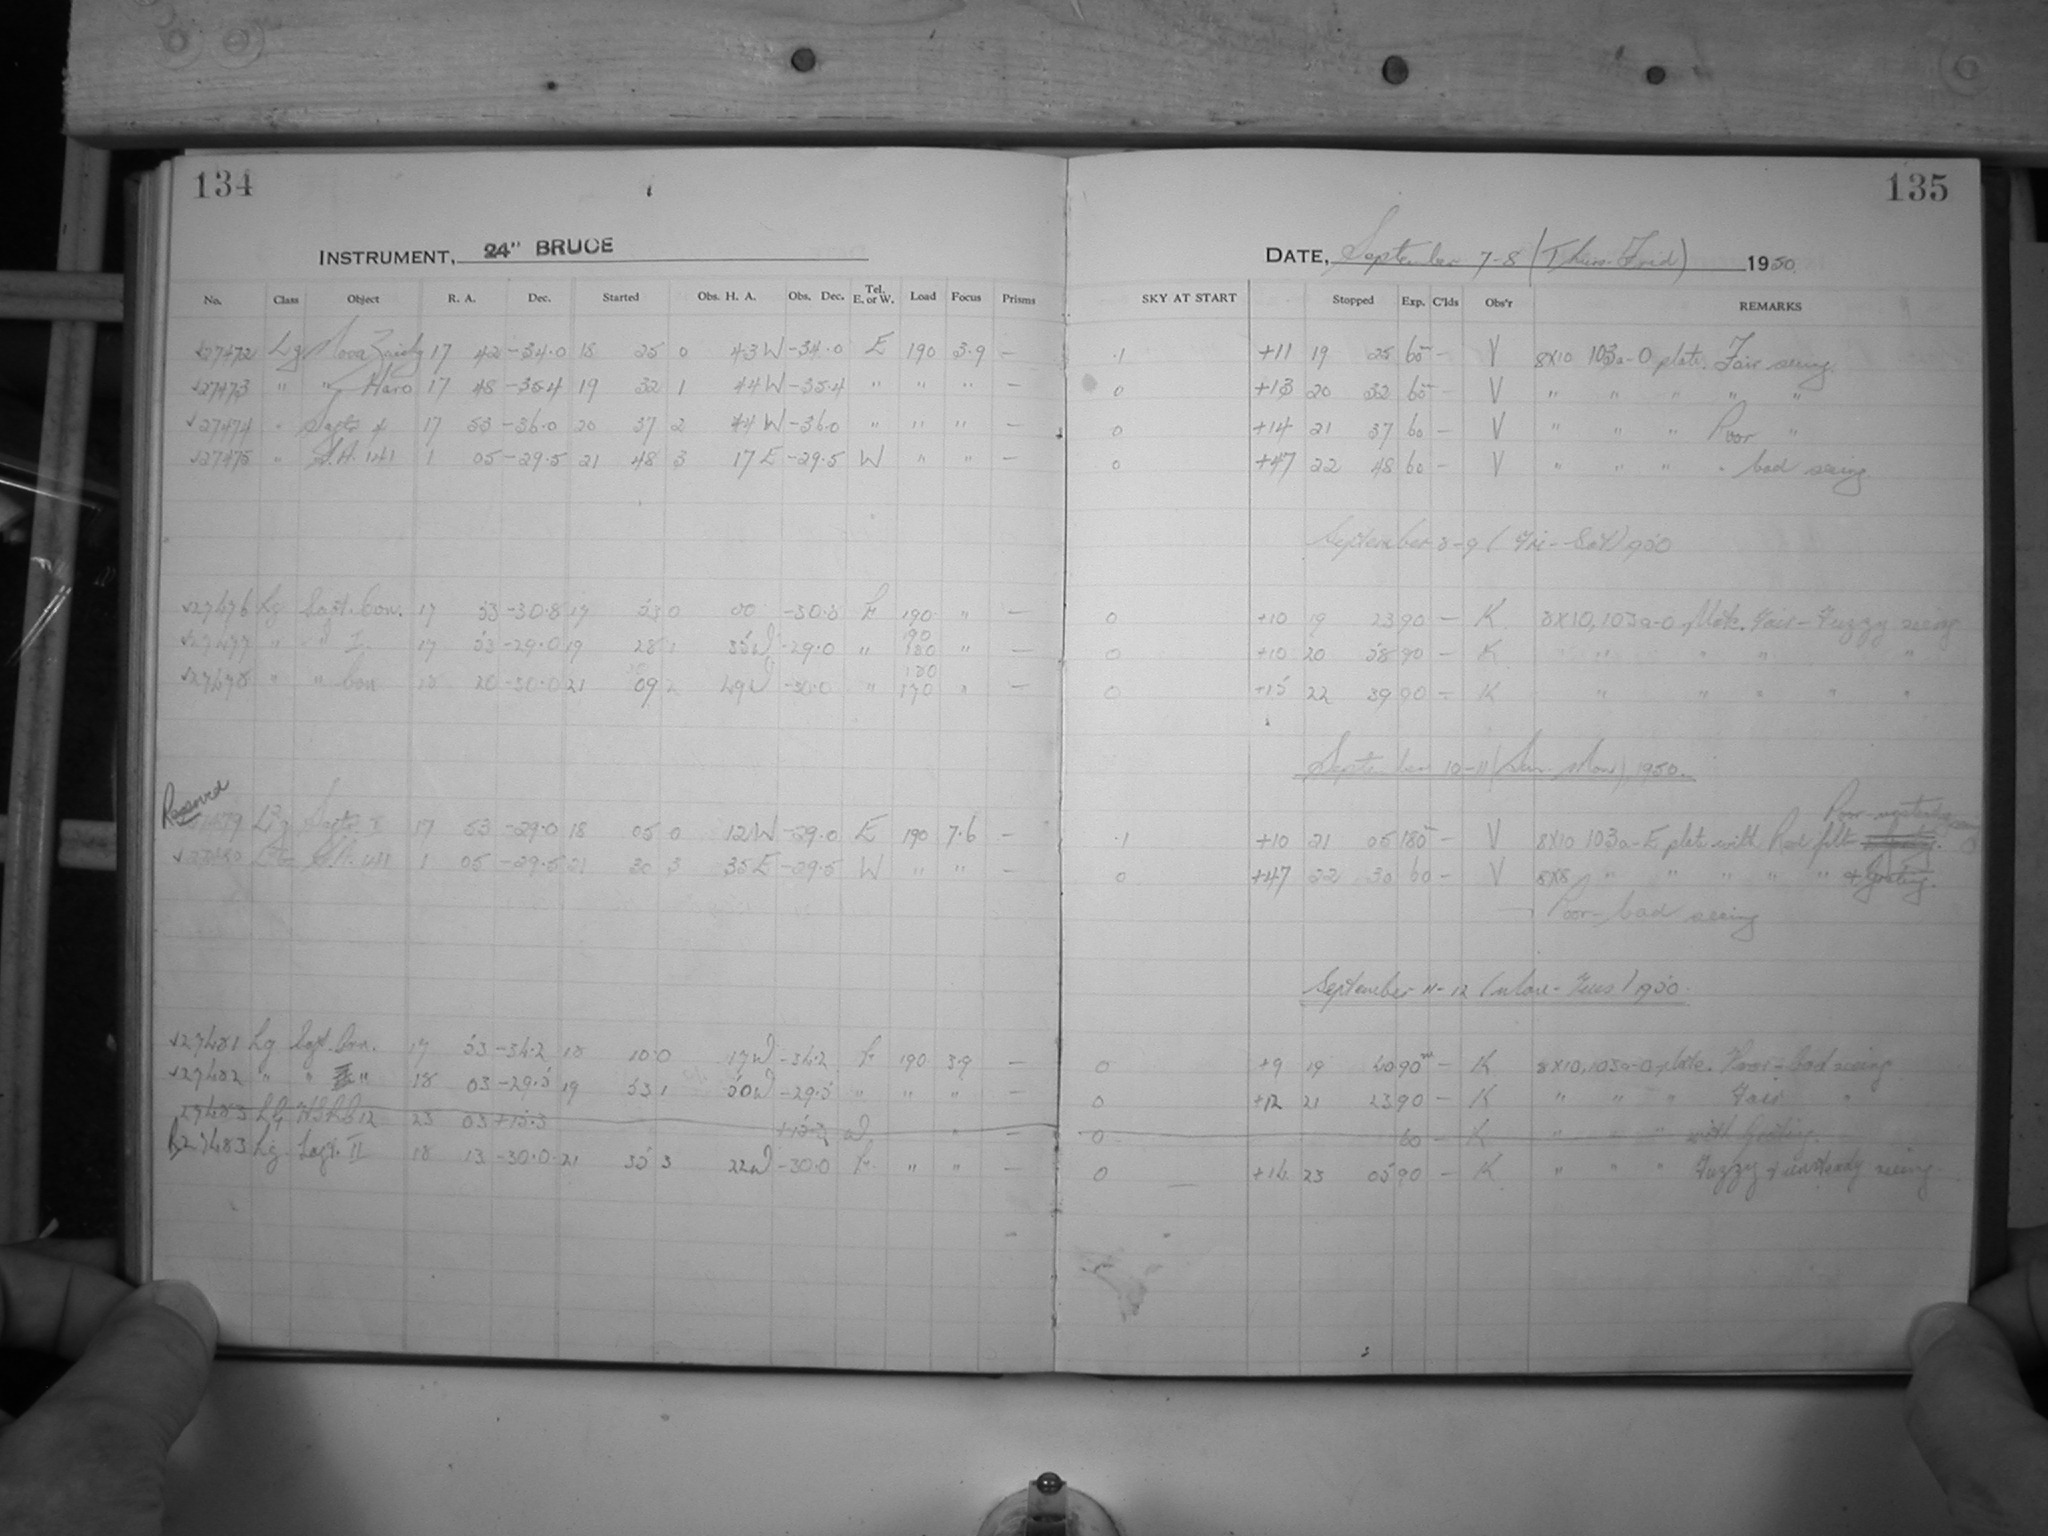 134
135
INSTRUMENT, 24" BRUCE
DATE, September 7-8 (Thurs-Frid) 1950
No. Class Object R. A. Dec. Started Obs. H. A. Obs. Dec. Tel. E. or W. Load Focus Prisms SKY AT START Stopped Exp. C'lds Obs'r REMARKS
27472 Lg Nova 17 42 -34.0 18 25 0 43 W -34.0 E 190 3.9 – .1 +11 19 25 60 – V 8x10 103a-O plate. Fair seeing
27473 " " Haro 17 48 -35.4 19 32 1 44 W -35.4 " " " – 0 +13 20 32 60 – V " " " " "
27474 " 17 53 -36.0 20 37 2 44 W -36.0 " " " – 0 +14 21 37 60 – V " " " Poor "
27475 " S.H. 141 1 05 -29.5 21 48 3 17 E -29.5 W " " – 0 +47 22 48 60 – V " " " " bad seeing
September 8-9 (Fri-Sat) 1950
27476 Lg 17 53 -30.8 17 53 0 00 -30.8 E 190 " – 0 +10 19 23 90 – K 8x10, 103a-O plate. Fair-Fuzzy seeing
27477 " 17 53 -29.0 19 28 1 35 W -29.0 " 190 " – 0 +10 20 58 90 – K " " " "
27478 " " 18 20 -30.0 21 09 2 49 W -30.0 " 170 " – 0 +15 22 39 90 – K " " " " "
September 10-11 (Sun-Mon), 1950.
Poor
17 53 -29.0 18 05 0 12 W -29.0 E 190 7.6 – .1 +10 21 05 180 – V 8x10 103a-E plate with Red filt
27480 1 05 -29.5 21 30 3 35 E -29.5 W " " – 0 +47 22 30 60 – V 8x8 " " " " " & Grating.
Poor-bad seeing
September 11-12 (Mon-Tues) 1950.
27481 Lg Sagt. 17 53 -34.2 18 10 0 17 W -34.2 E 190 3.9 – 0 +9 19 40 90 – K 8x10, 103a-O plate. Poor-bad seeing
27482 " " 18 03 -29.5 19 53 1 50 W -29.5 " " " – 0 +12 21 23 90 – K " " " Fair "
27483 23 03 +15.3 +15.3 W " – 0 60 – K " " " with Grating.
27483 Lg Sagt. II 18 13 -30.0 21 35 3 22 W -30.0 E " " – 0 +14 23 05 90 – K " " " Fuzzy & unsteady seeing